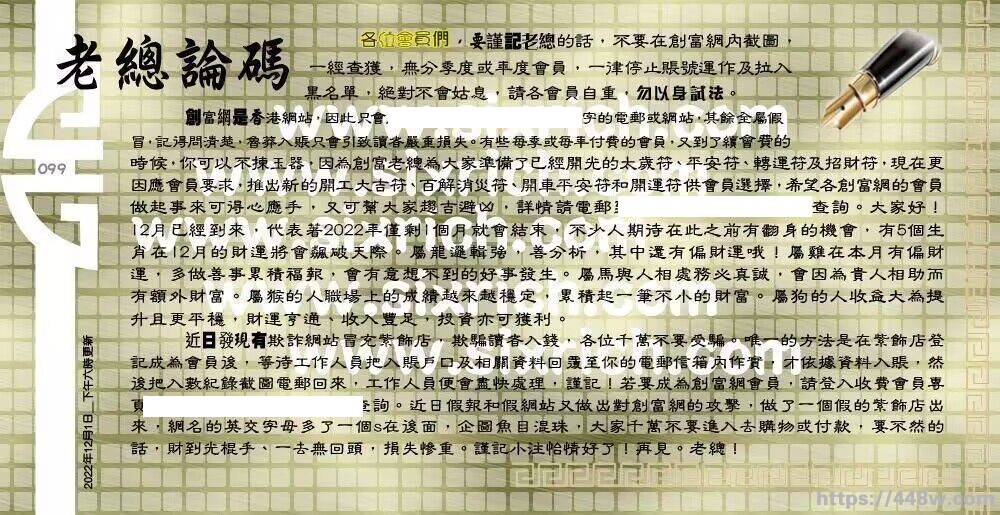 老總論碼
各位會員們，要謹記老總的話，不要在創富網內截圖，
一經查獲，無分季度或年度會員，一律停止賬號運作及拉入
黑名單，絕對不會姑息，請各會員自重，勿以身試法。
創富網是香港網站，因此只會 字的電郵或網站，其餘全屬假
冒，記得問清楚，魯莽入賬只會引致讀者嚴重損失。有些每季或每年付費的會員，又到了續會費的
時候，你可以不揀玉器，因為創富老總為大家準備了已經開光的太歲符、平安符、轉運符及招財符，現在更
因應會員要求，推出新的開工大吉符、百解消災符、開車平安符和開運符供會員選擇，希望各創富網的會員
做起事來可得心應手，又可幫大家趨吉避凶，詳情請電郵 查詢。大家好！
12月已經到來，代表著2022年僅剩1個月就會結束，不少人期待在此之前有翻身的機會，有5個生
肖在12月的財運將會飆破天際。屬龍邏輯強，善分析，其中還有偏財運哦！屬雞在本月有偏財
運，多做善事累積福報，會有意想不到的好事發生。屬馬與人相處務必真誠，會因為貴人相助而
有額外財富。屬猴的人職場上的成績越來越穩定，累積起一筆不小的財富。屬狗的人收益大為提
升且更平穩，財運亨通、收入豐足，投資亦可獲利。
近日發現有欺詐網站冒充紫飾店，欺騙讀者入錢，各位千萬不要受騙，唯一的方法是在紫飾店登
記成為會員後，等待工作人員把入賬戶口及相關資料回覆至你的電郵信箱內作實，才依據資料入賬，然
後把入數紀錄截圖電郵回來，工作人員便會盡快處理，謹記！若要成為創富網會員，請登入收費會員專
頁 查詢。近日假報和假網站又做出對創富網的攻擊，做了一個假的紫飾店出
來，網名的英文字母多了一個s在後面，企圖魚目混珠，大家千萬不要進入去購物或付款，要不然的
話，財到光棍手、一去無回頭，損失慘重。謹記小注怡情好了！再見。老總！
099
2022年12月1日_下午六時更新
www.sixrich.com
www.sixrich.com
www.sixrich.com
www.sixrich.com
www.sixrich.com
https://448w.com